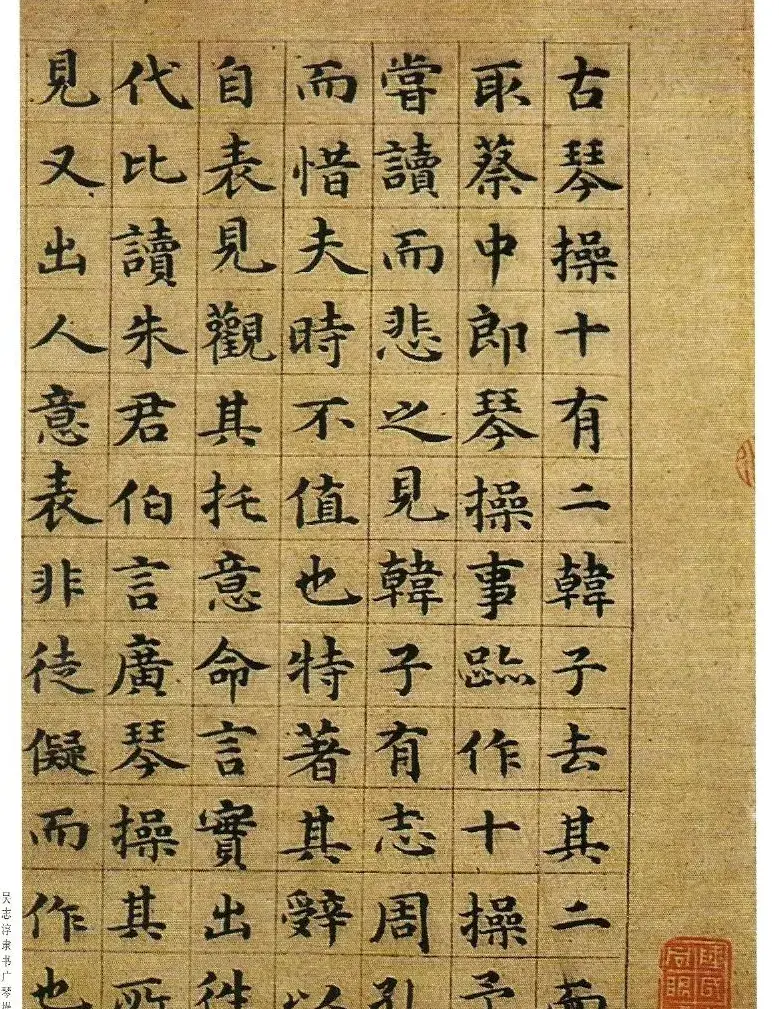 古琴操十有二韓子去其二而
取蔡中郎琴操事跡作十操予
嘗讀而悲之見韓子有志周孔
而惜夫時不值也特著其辭以
自表見觀其托意命言實出徃
代比讀朱君伯言廣琴操其所
見又出人意表非徒儗而作也
吴志淳隶书广琴操